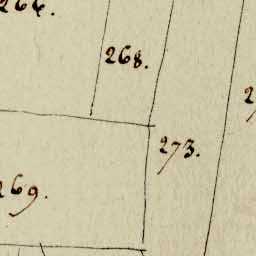 266.
268.
273.
269.